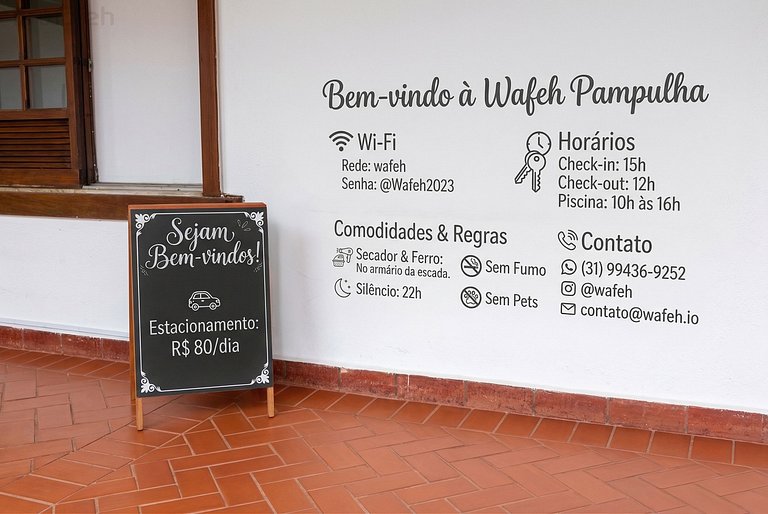 Bem-vindo à Wafeh Pampulha
Wi-Fi
Rede: wafeh
Senha: @Wafeh2023
Horários
Check-in: 15h
Check-out: 12h
Piscina: 10h às 16h
Comodidades & Regras
Secador & Ferro:
No armário da escada.
Silêncio: 22h
Sem Fumo
Sem Pets
Contato
(31) 99436-9252
@wafeh
contato@wafeh.io
Sejam
Bem-vindos!
Estacionamento:
R$ 80/dia